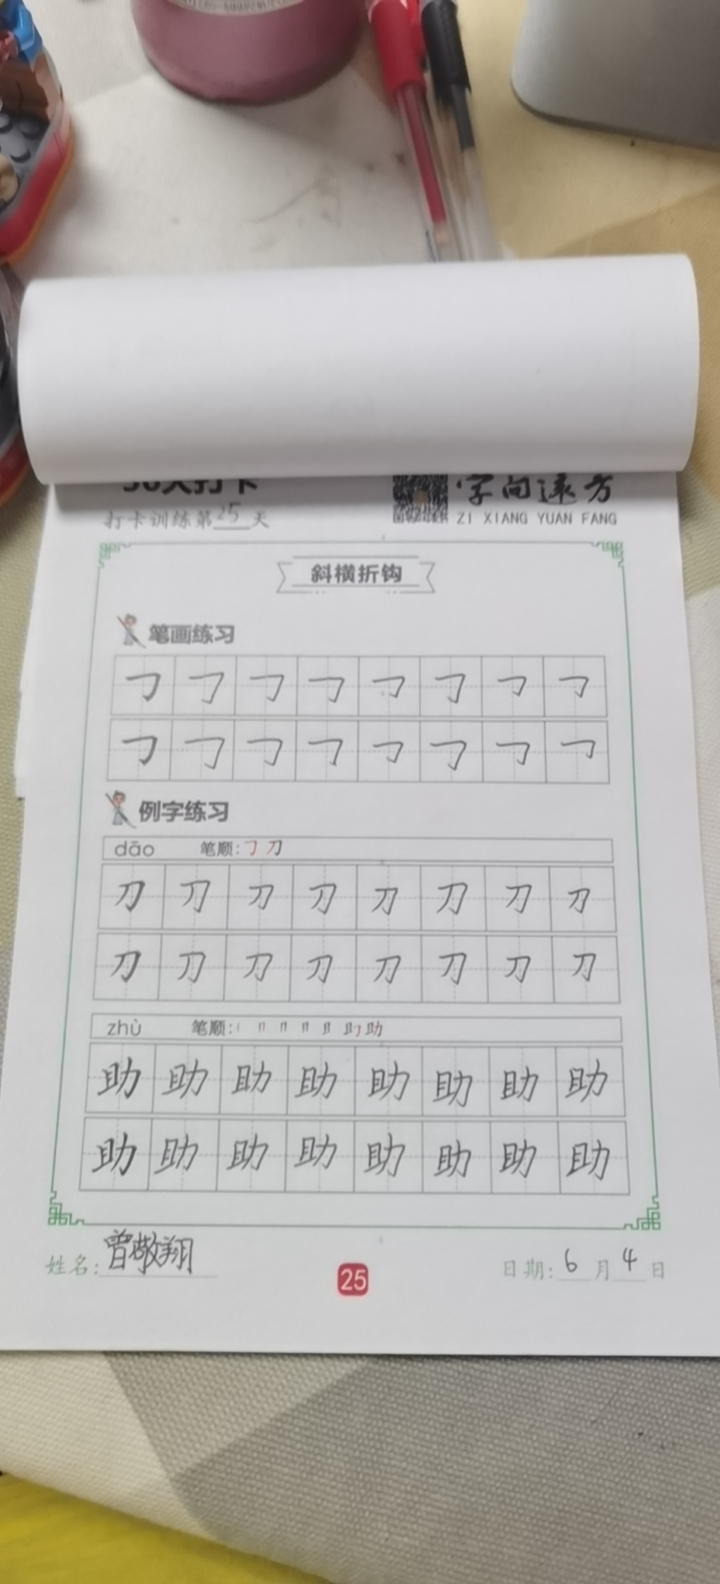 打卡训练第25天
字向远方
ZI XIANG YUAN FANG
斜横折钩
笔画练习
例字练习
dāo 笔顺: 刀
刀 刀 刀 刀 刀 刀 刀 刀
刀 刀 刀 刀 刀 刀 刀 刀
zhù 笔顺: 助
助 助 助 助 助 助 助 助
助 助 助 助 助 助 助 助
姓名: 曾敬翔
25
日期: 6月4日